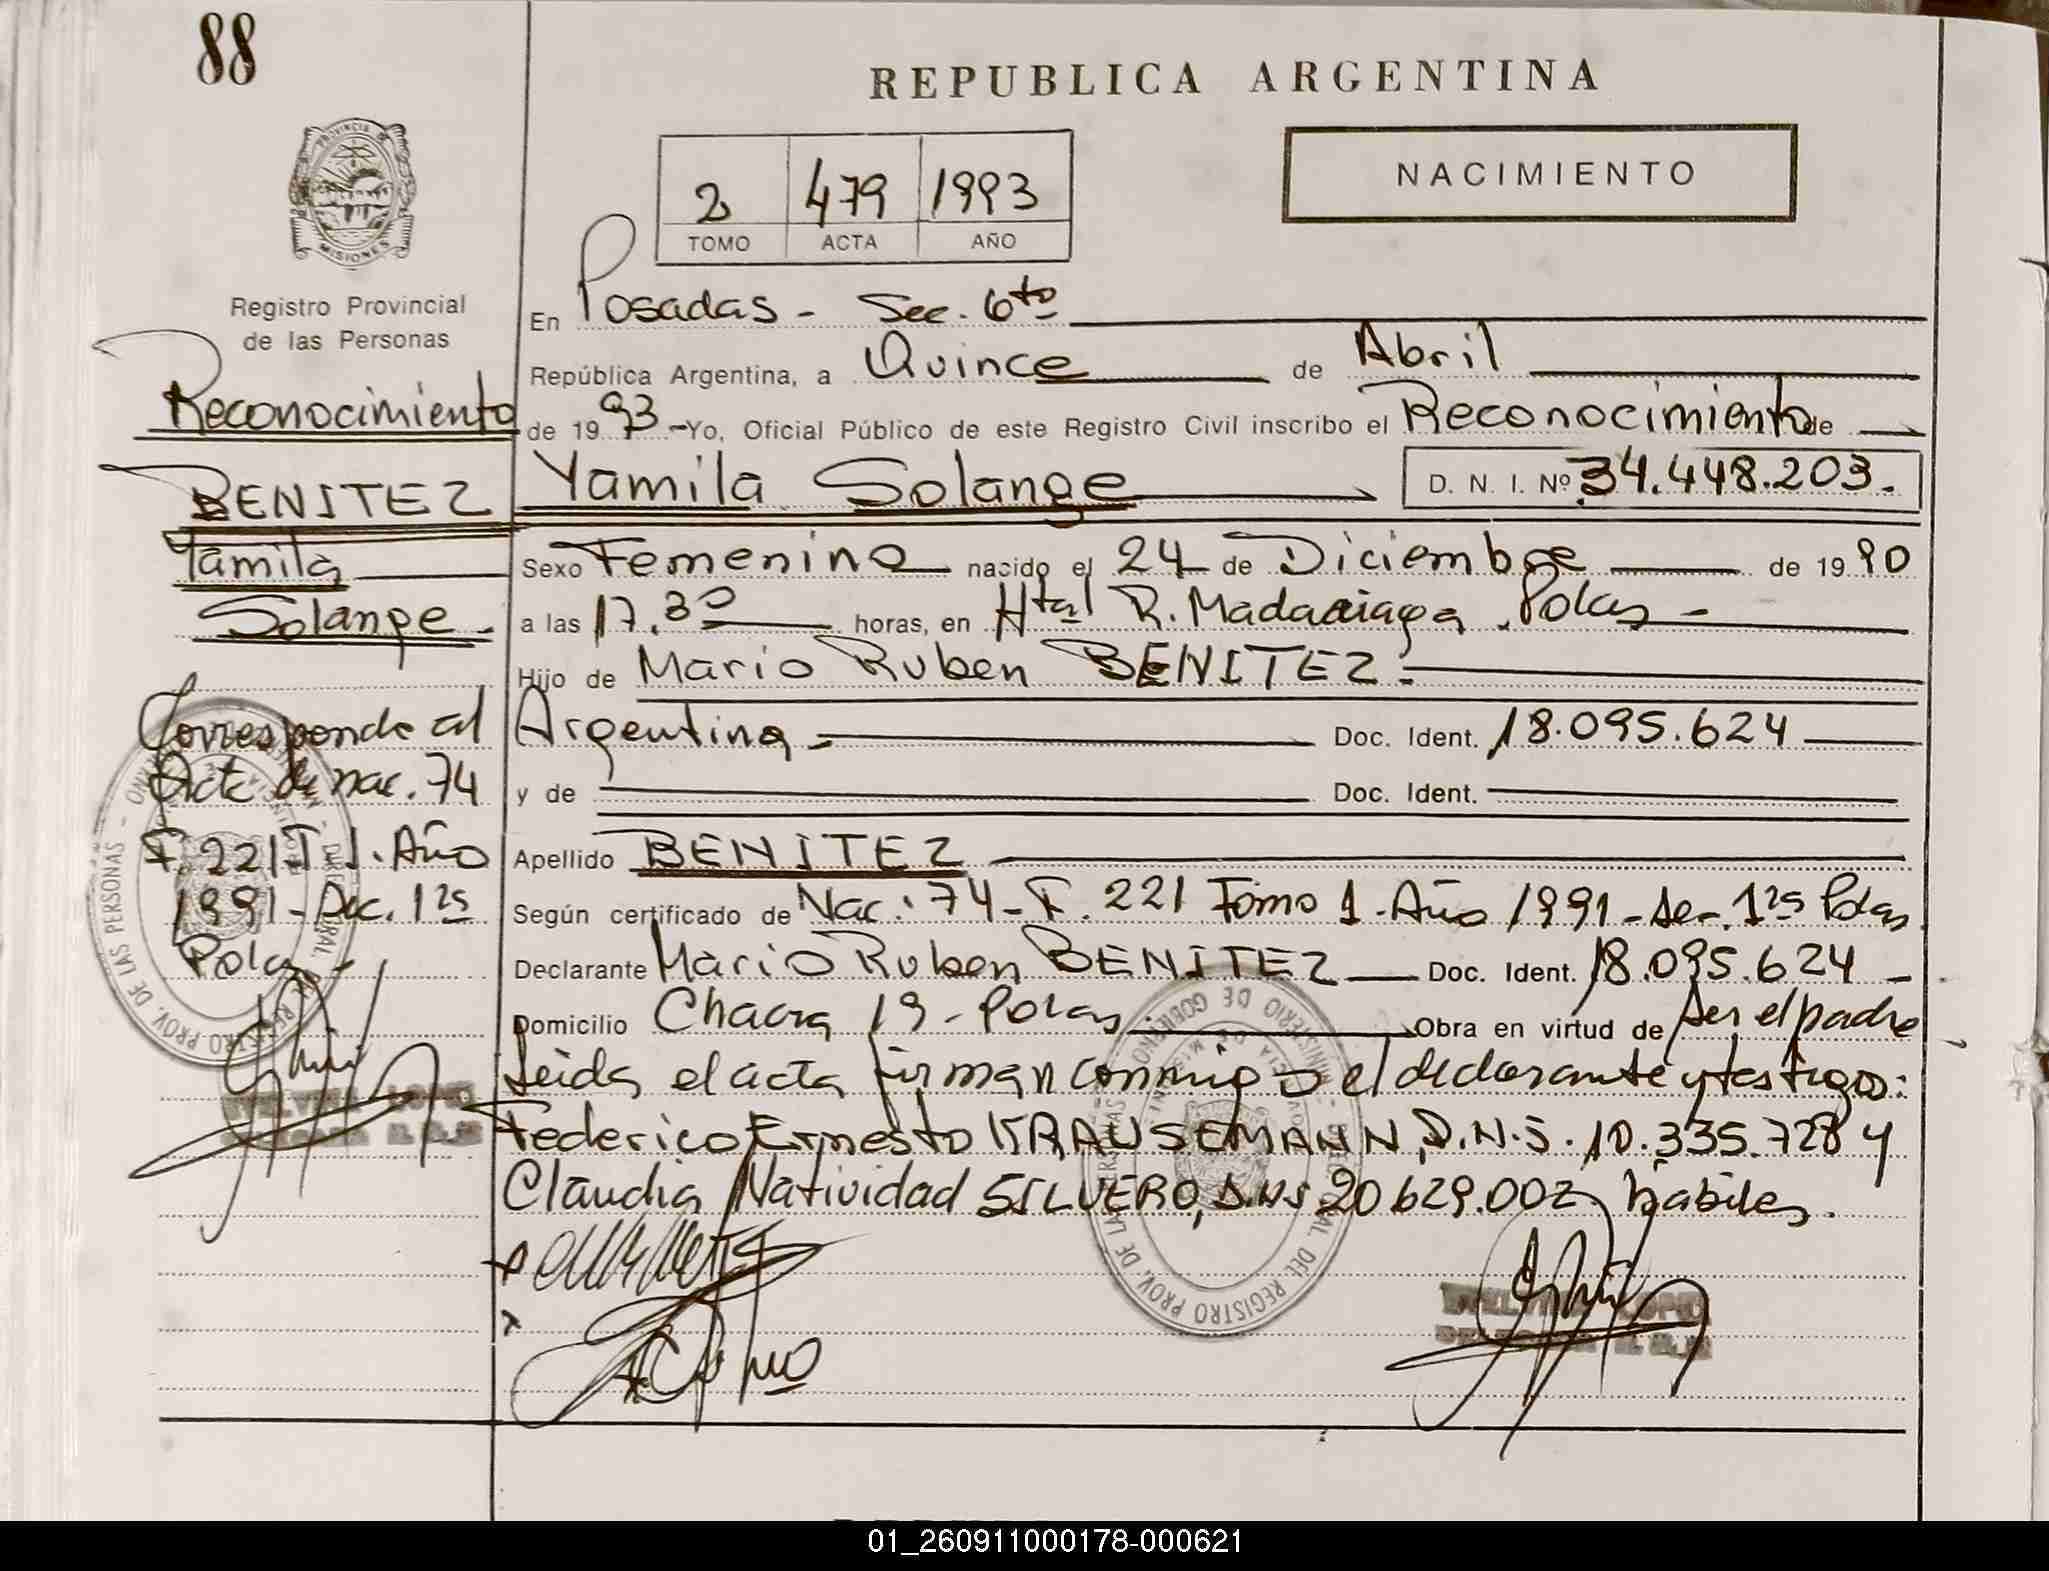 88
REPUBLICA ARGENTINA
NACIMIENTO
2 479 1993
TOMO ACTA AÑO
PROVINCIA DE MISIONES
Registro Provincial
de las Personas
Reconocimiento
BENITEZ
Yamila
Solange -
Corresponde al
Acta de nac. 74
F. 221 T 1. Año
1991 - Sec. 1ra
Pdas -
En Posadas - Sec. 6to
República Argentina, a Quince de Abril
de 1993 - Yo, Oficial Público de este Registro Civil inscribo el Reconocimiento de
Yamila Solange D. N. I. Nº 34.448.203.
Sexo Femenino nacido el 24 de Diciembre de 1990
a las 17.30 horas, en Htal R. Madariaga . Pdas -
Hijo de Mario Ruben BENITEZ.
Argentina - Doc. Ident. 18.095.624
y de Doc. Ident.
Apellido BENITEZ
Según certificado de Nac. 74 - F. 221 Tomo 1 - Año 1991 - Sec. 1ra Pdas
Declarante Mario Ruben BENITEZ Doc. Ident. 18.095.624 -
Domicilio Chacra 19 - Pdas. Obra en virtud de ser el padre
Leida el acta firman conmigo el declarante y testigos:
Federico Ernesto KRAUSEMANN, D.N.I. 10.335.728 y
Claudia Natividad SILVERO, D.N.I 20629.002 habiles.
01_260911000178-000621